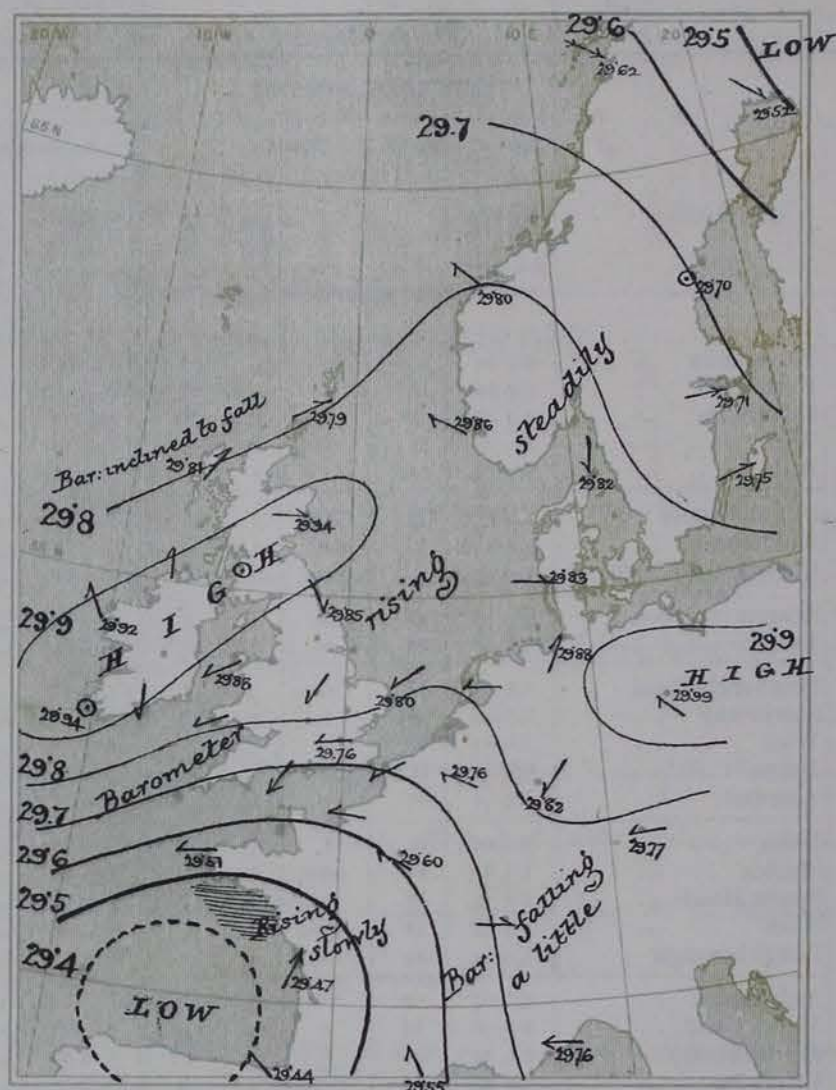 20°W
10°W
0
10°E
20°E
29.6
29.5
LOW
29.62
29.52
65 N
29.7
29.80
29.70
steadily
29.79
29.86
29.71
Bar: inclined to fall
29.81
29.82
29.75
29.8
29.94
55 N
HIGH
rising
29.83
29.9
29.92
29.85
29.9
29.88
HIGH
29.85
29.99
29.94
29.80
29.76
29.8
Barometer
29.76
29.82
29.7
29.77
29.6
29.60
29.5
Rising
slowly
Bar: falling
a little
29.4
29.47
LOW
29.76
29.44
29.55